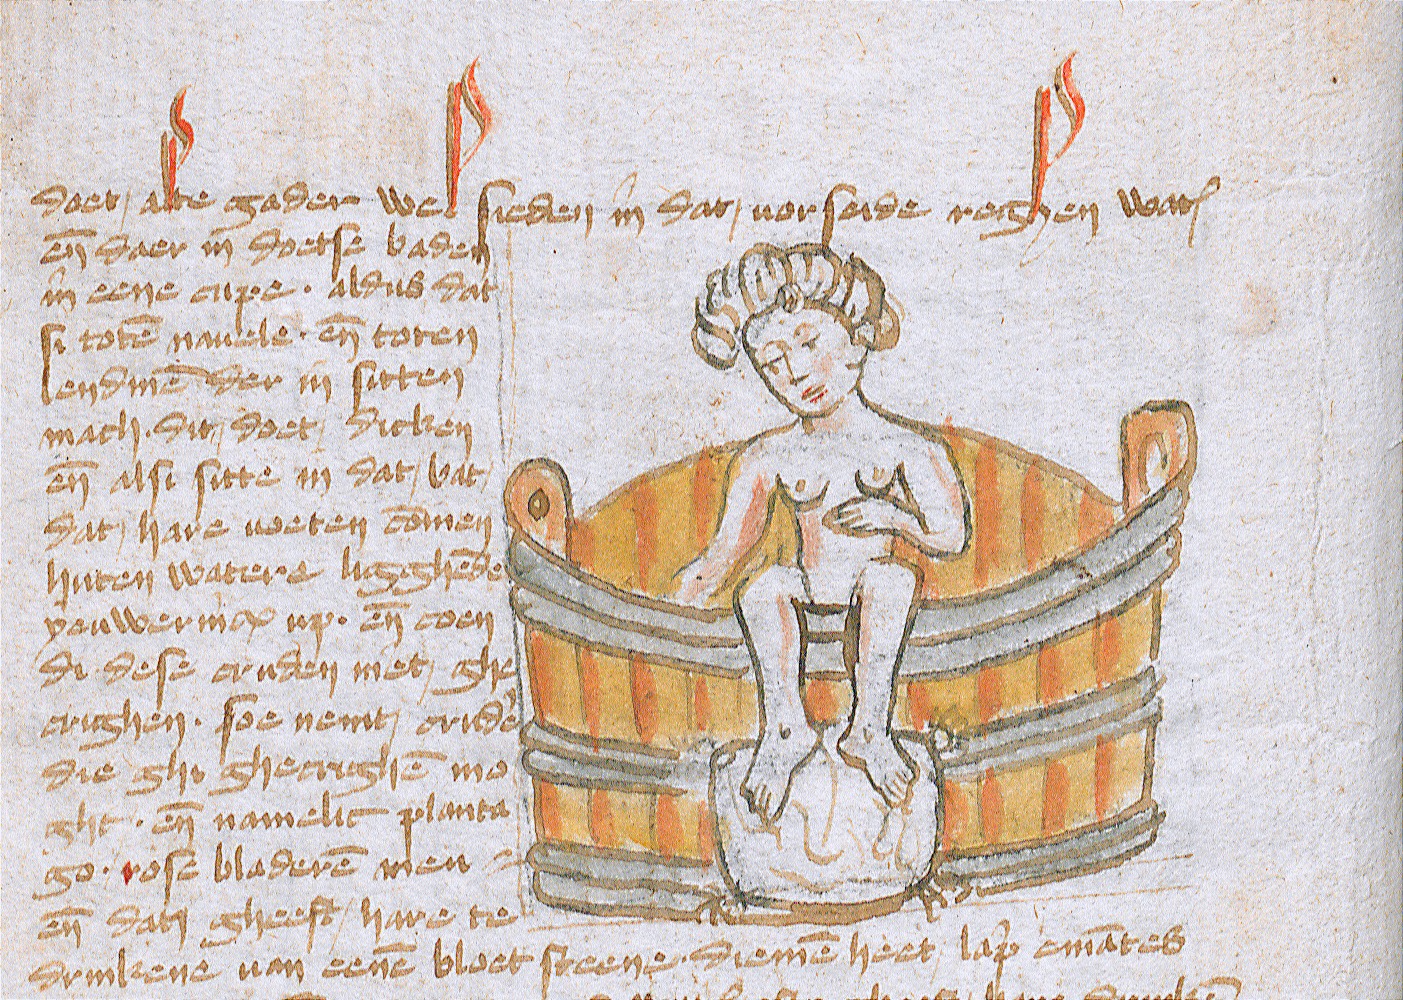 doet alte gader wel sieden in dat vorseide reghen wat̄
en̄ daer in doetse baden
in eene cupe · aldus dat
si totē navele · en̄ toten
lendinē der in sitten
mach · dit doet dicken
en̄ alsi sitte in dat bat
dat hare voeten cōmen
huten watere ligghēde
yeuwerincx up · en̄ coen
di dese cruden niet ghe
crighen · soe nemt crudē
die ghi ghecrighē mo
ght · en̄ namelic planta
go · rose bladerē men
en̄ dan gheeft hare te
drinkene van eenē bloet steene · diemē heet lap̄ emātes